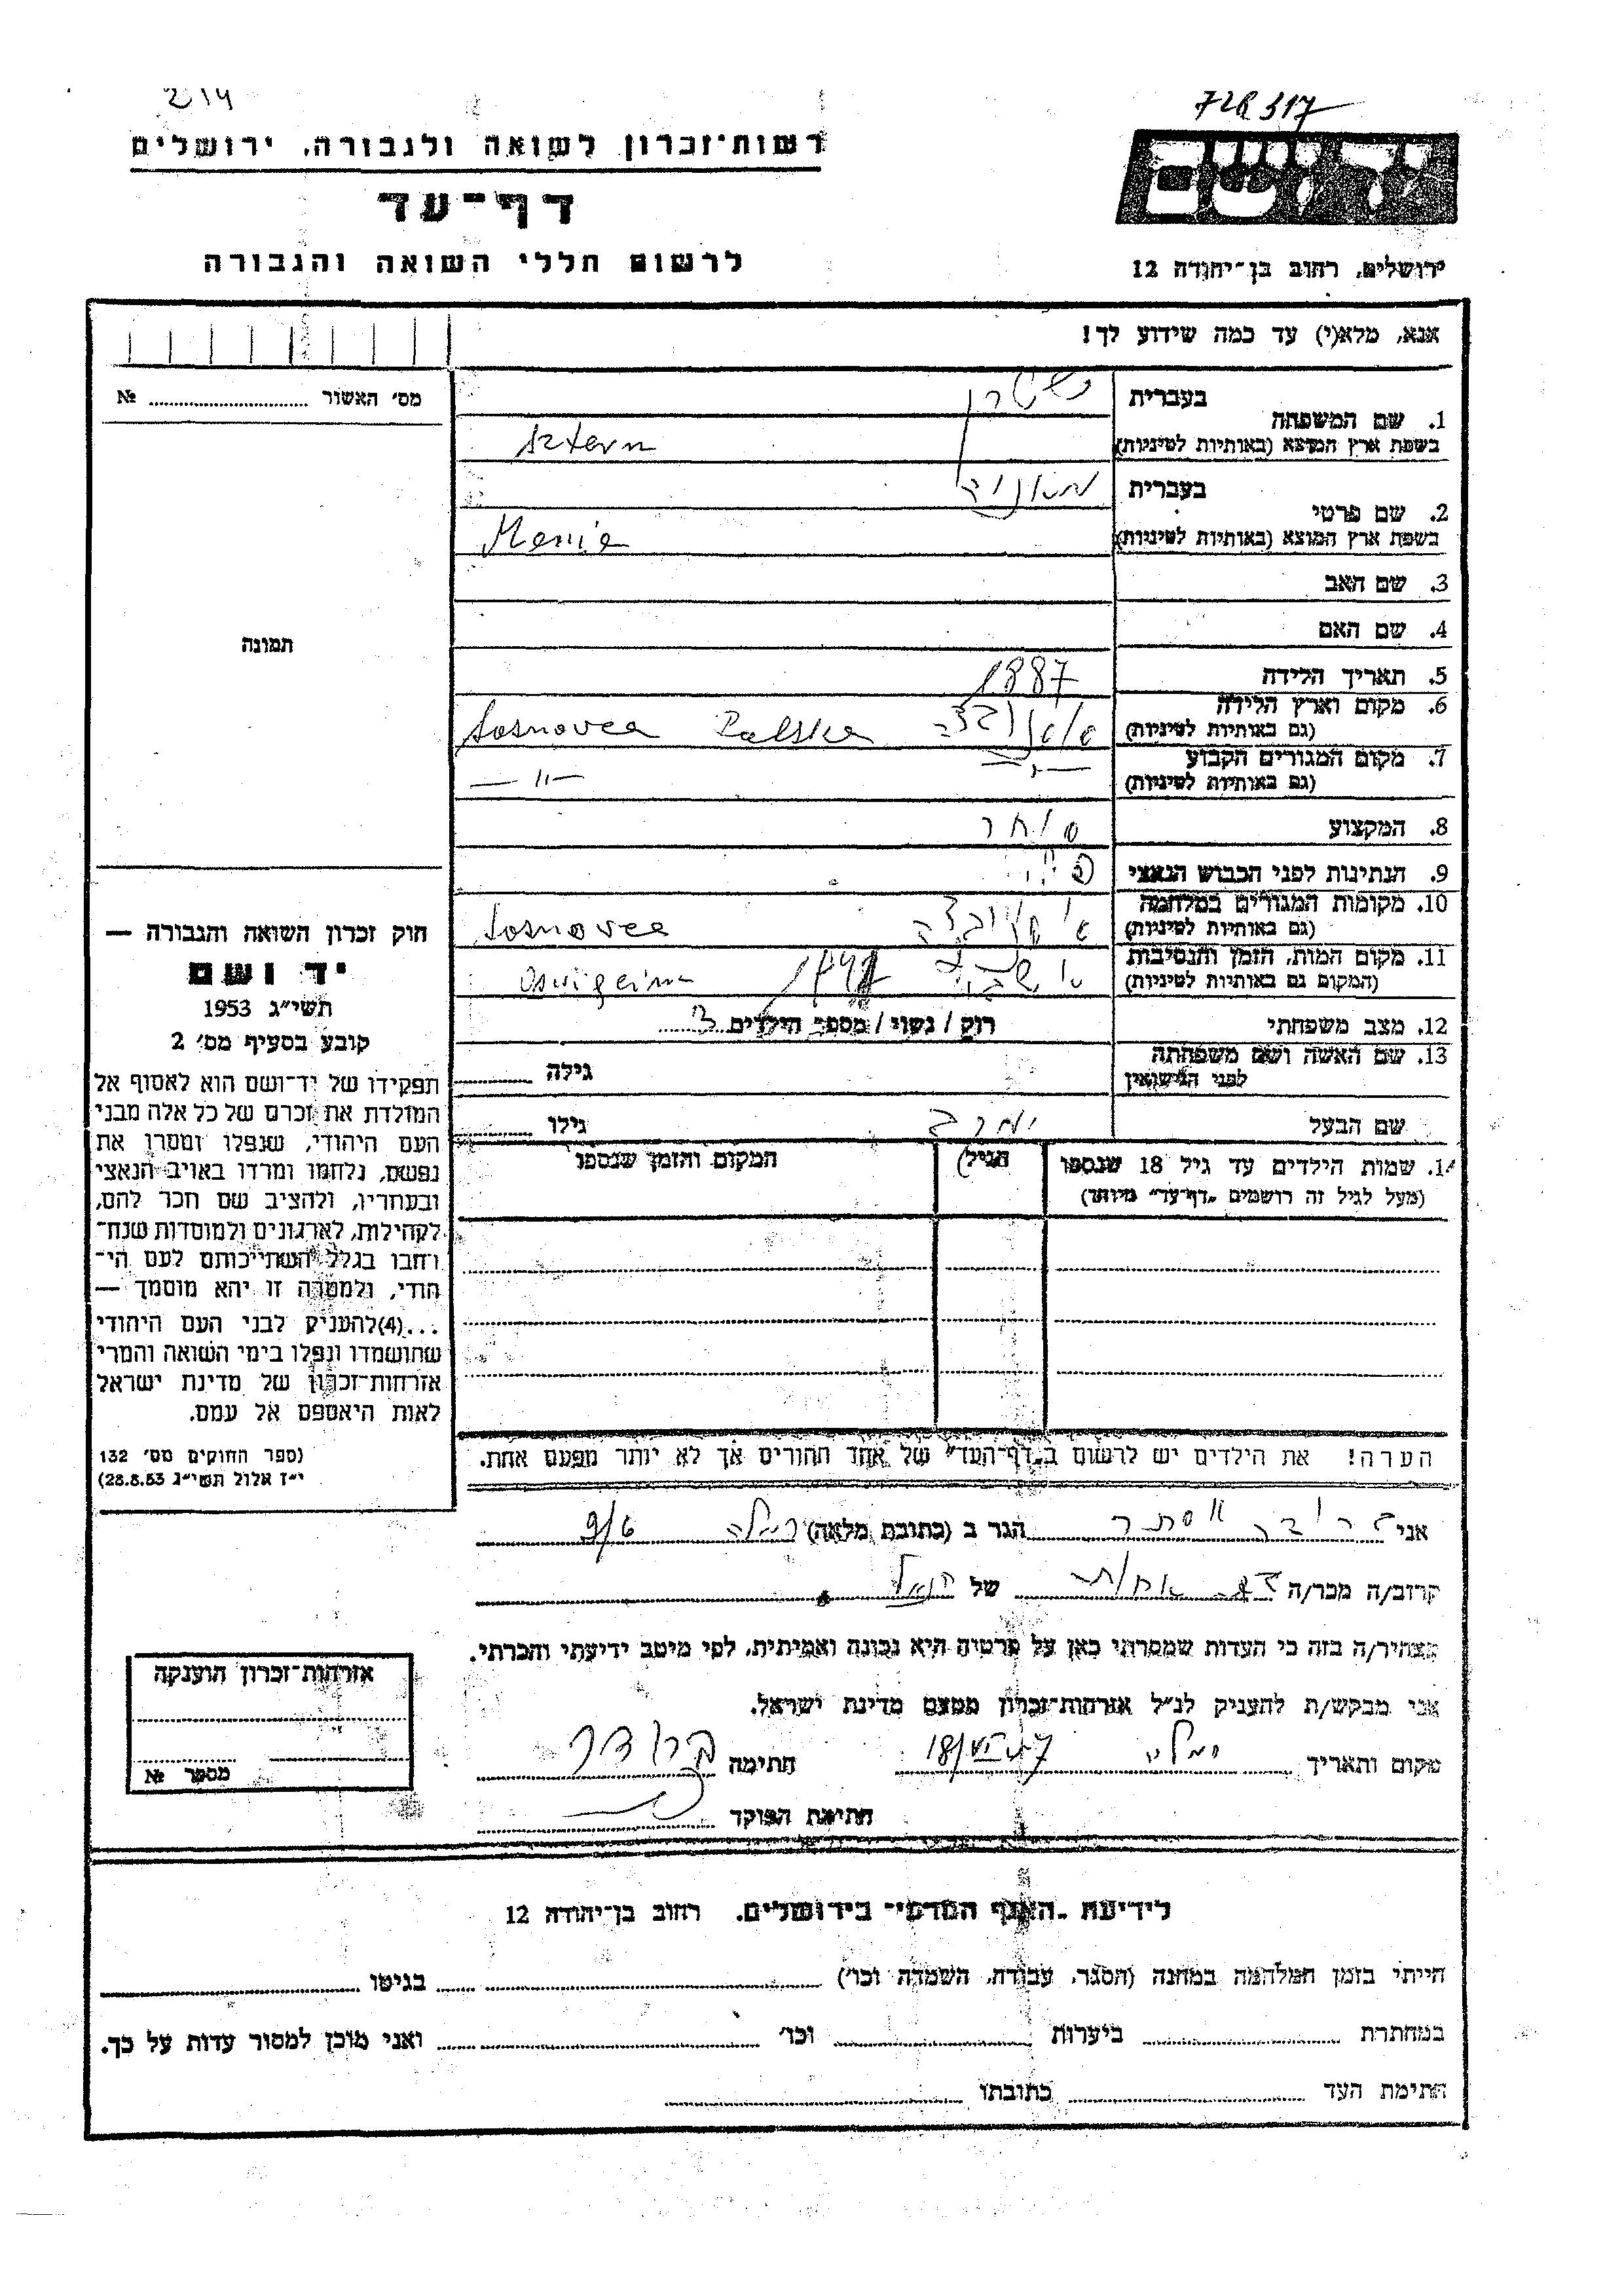 214
רשות־זכרון לשואה ולגבורה, ירושלים
דף־עד
לרשום חללי השואה והגבורה
יד ושם
ירושלים, רחוב בן־יהודה 12
אנא, מלא(י) עד כמה שידוע לך!
מס׳ האשור № 
תמונה
1. שם המשפחה
בעברית שטרן
בשפת ארץ המוצא (באותיות לטיניות) Sztern
2. שם פרטי
בעברית
בשפת ארץ המוצא (באותיות לטיניות) Menie
3. שם האב
4. שם האם
5. תאריך הלידה 1887
6. מקום וארץ הלידה
(גם באותיות לטיניות) Sosnovea Polska
7. מקום המגורים הקבוע
(גם באותיות לטיניות) — װ —
8. המקצוע סוחר
9. הנתינות לפני הכבוש הנאצי
10. מקומות המגורים במלחמה
(גם באותיות לטיניות) Sosnovea
11. מקום המות, הזמן והנסיבות
(המקום גם באותיות לטיניות)
12. מצב משפחתי רוק / נשוי / מספר הילדים 3
13. שם האשה ושם משפחתה
לפני הנישואין גילה
שם הבעל גילו
14. שמות הילדים עד גיל 18 שנספו
(מעל לגיל זה רושמים „דף־עד״ מיוחד)
הגיל
המקום והזמן שנספו
הערה! את הילדים יש לרשום ב„דף־העד״ של אחד ההורים אך לא יותר מפעם אחת.
חוק זכרון השואה והגבורה —
יד ושם
תשי״ג 1953
קובע בסעיף מס׳ 2
תפקידו של יד־ושם הוא לאסוף אל
המולדת את זכרם של כל אלה מבני
העם היהודי, שנפלו ומסרו את
נפשם, נלחמו ומרדו באויב הנאצי
ובעוזריו, ולהציב שם וזכר להם,
לקהילות, לארגונים ולמוסדות שנח־
רבו בגלל השתייכותם לעם הי־
הודי, ולמטרה זו יהא מוסמך —
...(4) להעניק לבני העם היהודי
שהושמדו ונפלו בימי השואה והמרי
אזרחות־זכרון של מדינת ישראל
לאות היאספם אל עמם.
(ספר החוקים מס׳ 132
י״ז אלול תשי״ג 28.8.53)
אני אסתר הגר ב (כתובת מלאה) רמלה
קרוב/ה מכר/ה של
מצהיר/ה בזה כי העדות שמסרתי כאן על פרטיה היא נכונה ואמיתית, לפי מיטב ידיעתי והכרתי.
אני מבקש/ת להעניק לנ״ל אזרחות־זכרון מטעם מדינת ישראל.
מקום ותאריך חתימה
חתימת הפוקד
אזרחות־זכרון הוענקה
מספר №
לידיעת „האגף המדעי״ בירושלים, רחוב בן־יהודה 12
הייתי בזמן המלחמה במחנה (הסגר, עבודה, השמדה וכו׳) בגיטו
במחתרת ביערות וכו׳ ואני מוכן למסור עדות על כך.
חתימת העד כתובתו